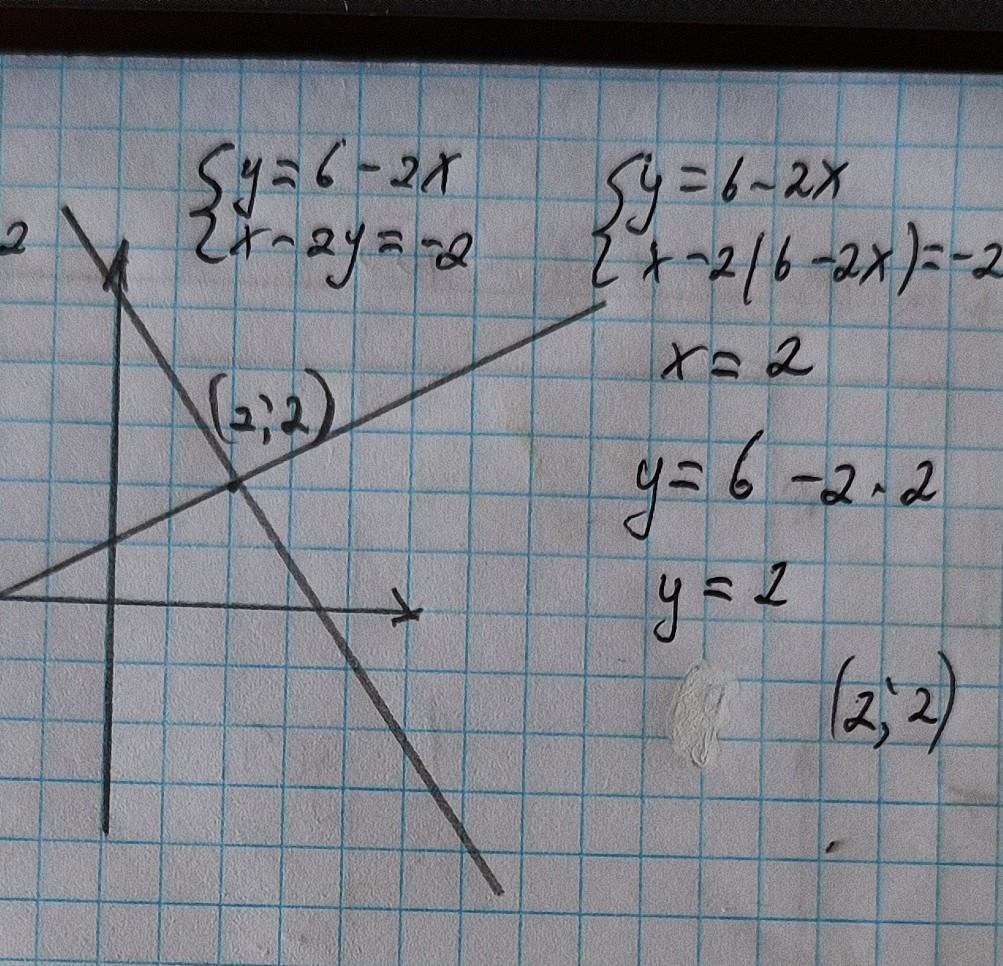 {y = 6 - 2x
{x - 2y = -2
{y = 6 - 2x
{x - 2(6 - 2x) = -2
2
x = 2
(2; 2)
y = 6 - 2 · 2
y = 2
(2; 2)